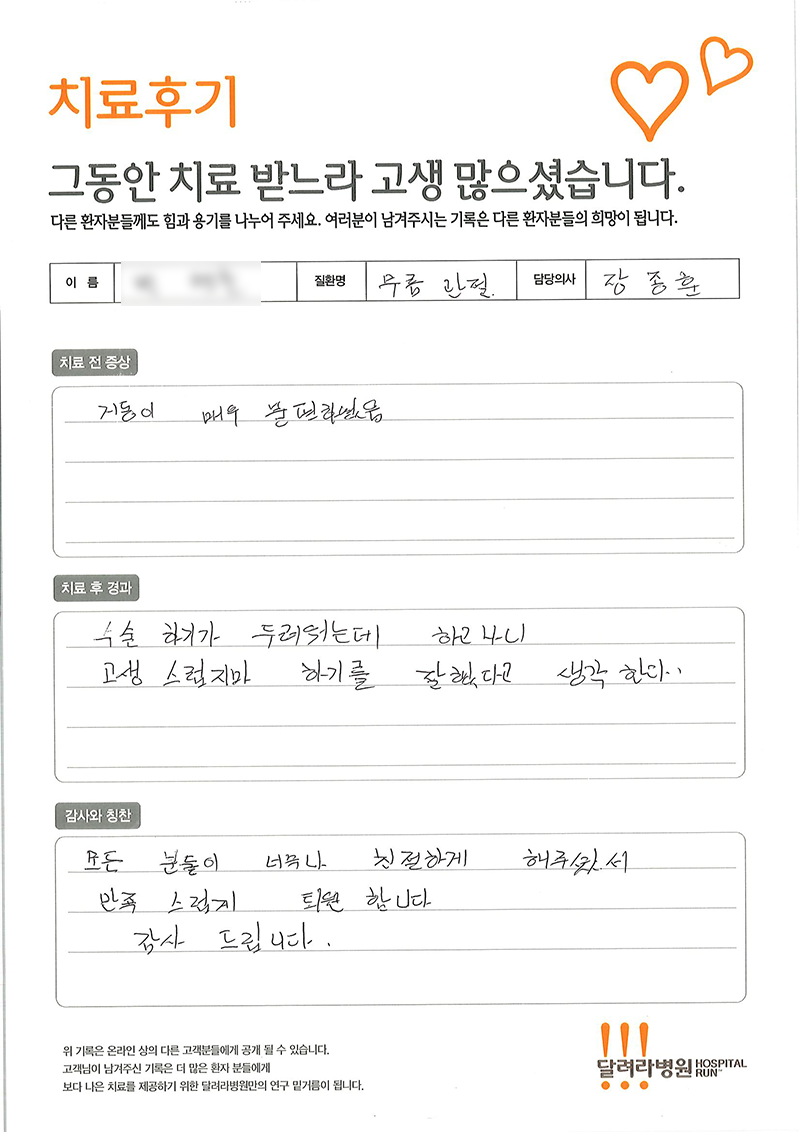 치료후기
그동안 치료 받느라 고생 많으셨습니다.
다른 환자분들께도 힘과 용기를 나누어 주세요. 여러분이 남겨주시는 기록은 다른 환자분들의 희망이 됩니다.
이 름 질환명 무릎 관절. 담당의사 장종훈
치료 전 증상
거동이 매우 불편하였음
치료 후 경과
수술 하기가 두려웠는데 하고나니
고생 스럽지마 하기를 잘했다고 생각 한다..
감사와 칭찬
모든 분들이 너무나 친절하게 해주셨서
만족 스럽게 퇴원 합니다
감사 드립니다.
위 기록은 온라인 상의 다른 고객분들에게 공개 될 수 있습니다.
고객님이 남겨주신 기록은 더 많은 환자 분들에게
보다 나은 치료를 제공하기 위한 달려라병원만의 연구 밑거름이 됩니다.
!!! 달려라병원 HOSPITAL RUN